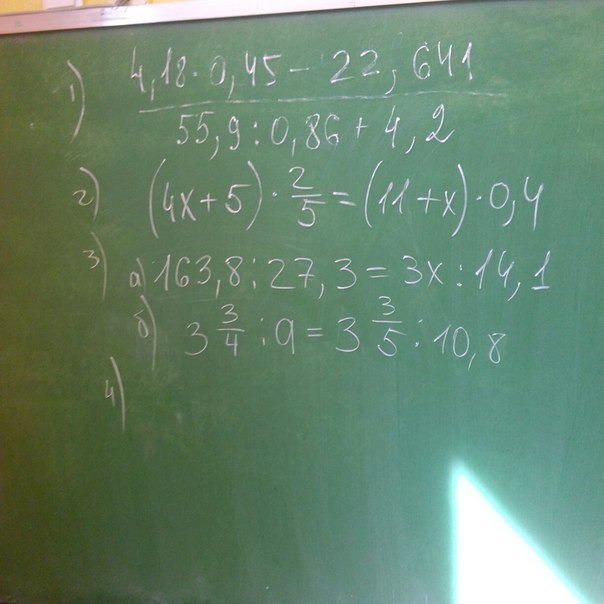 1) 4,18 · 0,45 − 22,641
55,9 : 0,86 + 4,2
2) (4x+5) · 2/5 = (11+x) · 0,4
3) а) 163,8 : 27,3 = 3x : 14,1
б) 3 3/4 : a = 3 3/5 : 10,8
4)